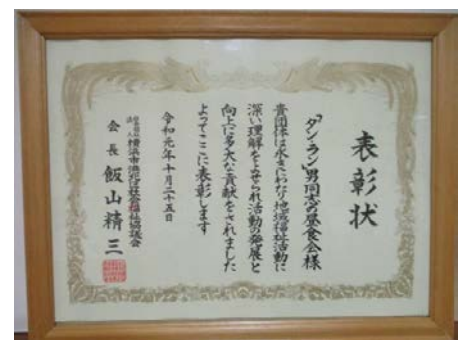 表彰状
"ダン・ラン"男同志の昼食会様
貴団体は永きにわたり地域福祉活動に
深い理解をよせられ活動の発展と
向上に多大な貢献をされました
よってここに表彰します
令和元年十月二十五日
社会福祉法人横浜市港北区社会福祉協議会
会長 飯山精三